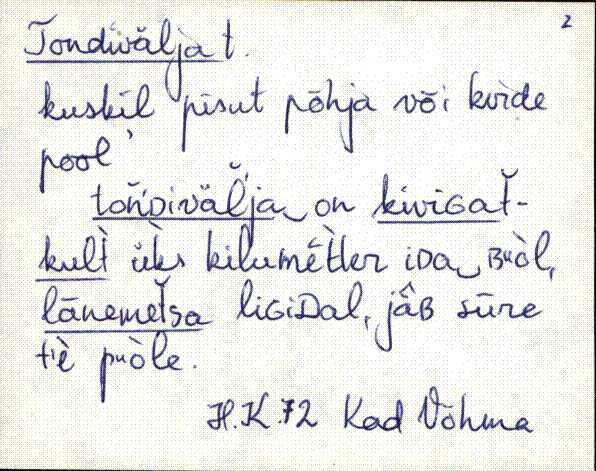 2
Tondivälja t.
kuskil pisut põhja või kirde
pool
tońDiväĺja‿on kiviGat̆-
kult̀ ük̀s kilumét̀ter iDa‿Bᵘòl,
lānemet̆sa liGiDal, jâB sūre
tⁱè pᵘòle.
H.K. 72 Kad Võhma